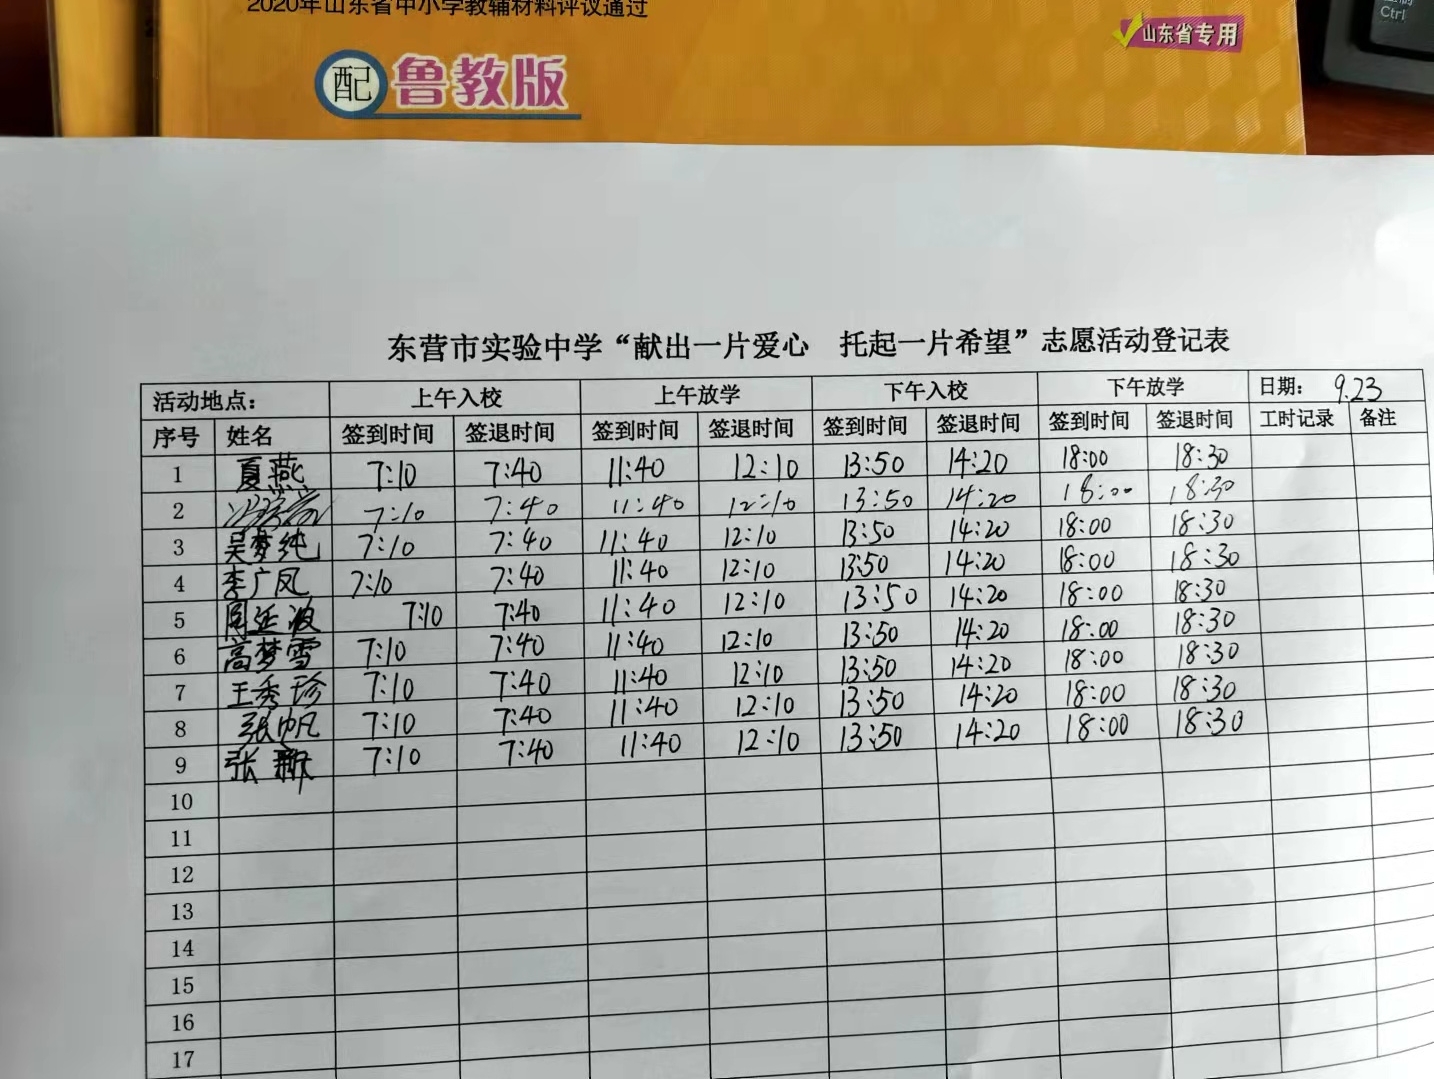 2020年山东省中小学教辅材料评议通过
山东省专用
Ctrl
配鲁教版
东营市实验中学“献出一片爱心 托起一片希望”志愿活动登记表
活动地点： 上午入校 上午放学 下午入校 下午放学 日期： 9.23
序号 姓名 签到时间 签退时间 签到时间 签退时间 签到时间 签退时间 签到时间 签退时间 工时记录 备注
1 夏燕 7:10 7:40 11:40 12:10 13:50 14:20 18:00 18:30
2 7:10 7:40 11:40 12:10 13:50 14:20 18:00 18:30
3 吴梦纯 7:10 7:40 11:40 12:10 13:50 14:20 18:00 18:30
4 李广凤 7:10 7:40 11:40 12:10 13:50 14:20 18:00 18:30
5 周延波 7:10 7:40 11:40 12:10 13:50 14:20 18:00 18:30
6 高梦雪 7:10 7:40 11:40 12:10 13:50 14:20 18:00 18:30
7 王秀珍 7:10 7:40 11:40 12:10 13:50 14:20 18:00 18:30
8 张帆 7:10 7:40 11:40 12:10 13:50 14:20 18:00 18:30
9 张 7:10 7:40 11:40 12:10 13:50 14:20 18:00 18:30
10
11
12
13
14
15
16
17